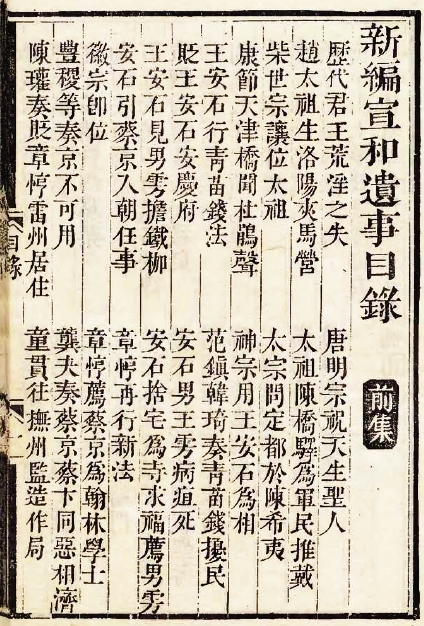 新編宣和遺事目錄 前集
歷代君王荒淫之失 唐明宗祝天生聖人
趙太祖生洛陽夾馬營 太祖陳橋驛爲軍民推戴
柴世宗讓位太祖 太宗問定都於陳希夷
康節天津橋聞杜鵑聲 神宗用王安石爲相
王安石行青苗錢法 范鎭韓琦奏青苗錢擾民
貶王安石安慶府 安石男王雱病疽死
王安石見男雱擔鐵枷 安石捨宅爲寺求福薦男雱
安石引蔡京入朝任事 章惇再行新法
徽宗卽位 章惇薦蔡京爲翰林學士
豐稷等奏京不可用 龔夬奏蔡京蔡卞同惡相濟
陳瓘奏貶章惇雷州居住 童貫往撫州監造作局
目錄